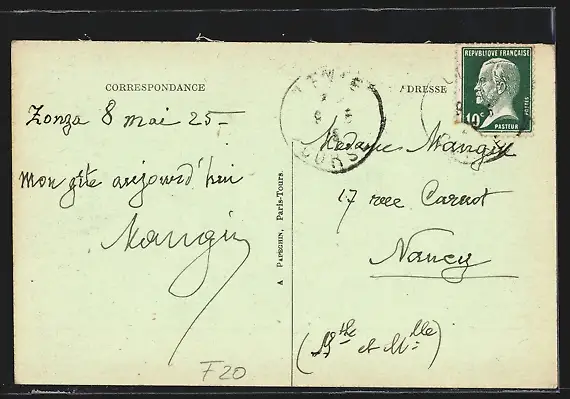 CORRESPONDANCE
ADRESSE
REPVBLIQVE FRANÇAISE
10c
POSTES
PASTEUR
8 mai 25
mon gîte aujourd'hui
Mangin
Madame Mangin
17 rue Carnot
Nancy
(Mthe et Mlle)
A PAPEGHIN, Paris-Tours.
F20